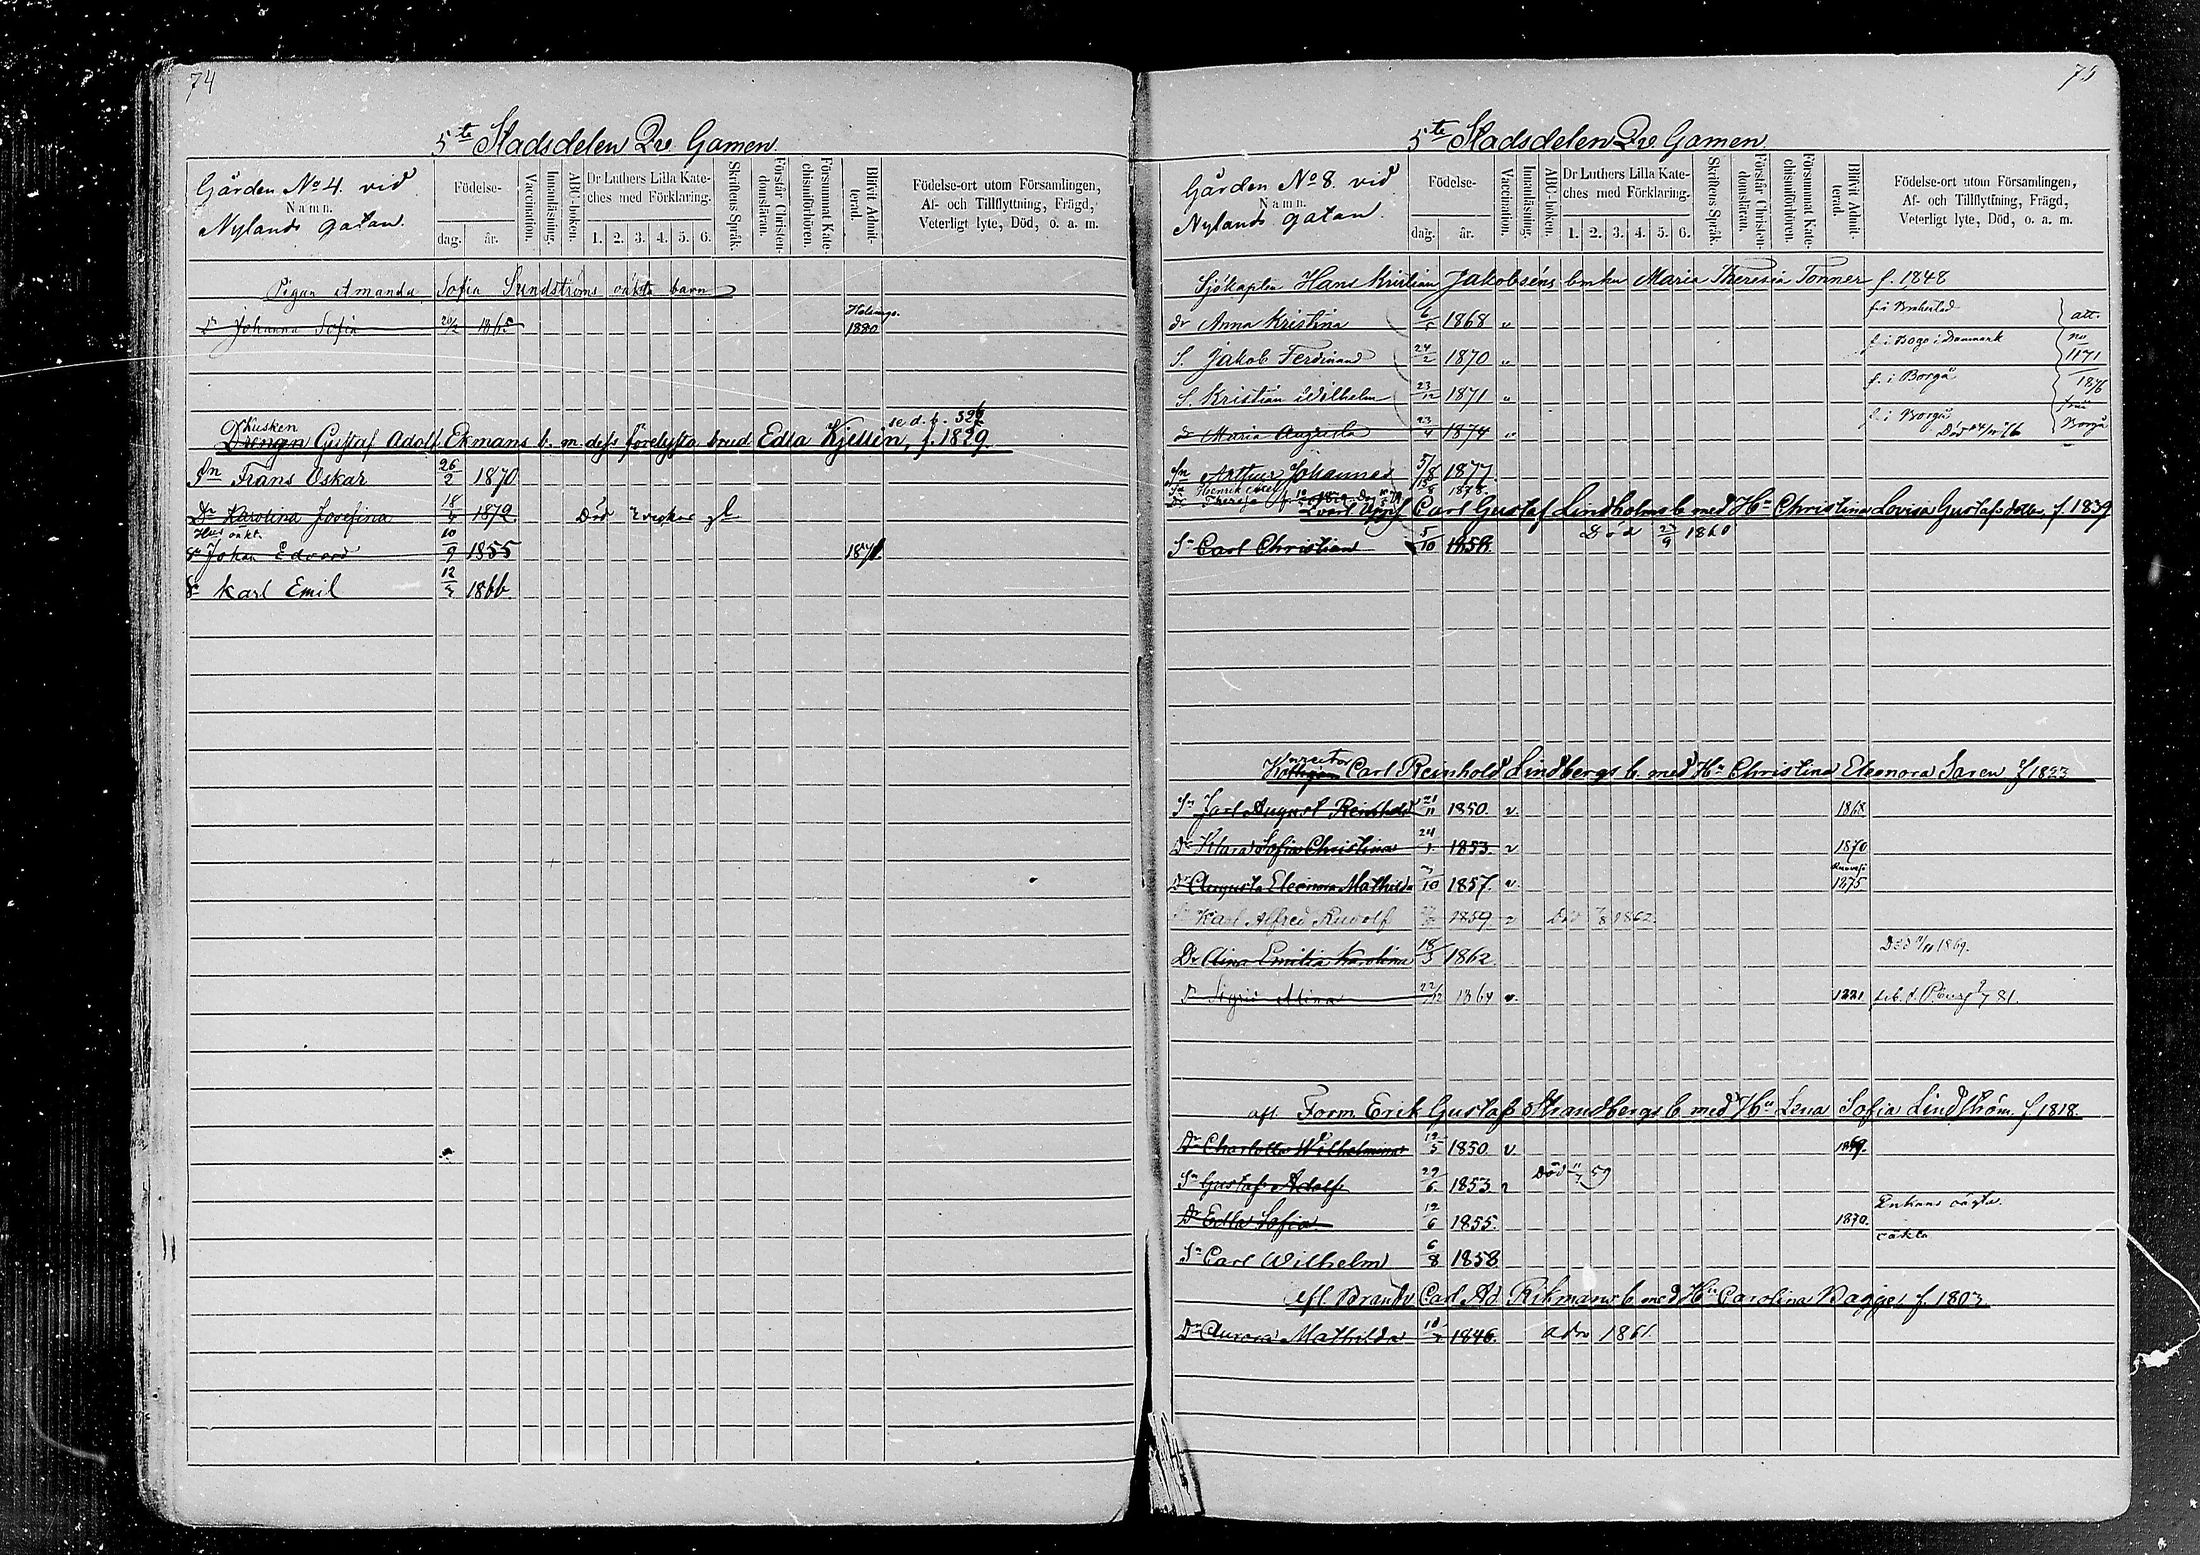 74
5te Stadsdelen Qv. Gamen.
Gården No 4. vid
Namn.
Nylands gatan.
Födelse-
dag. år.
Vaccination.
Innanläsning.
ABC-boken.
Dr Luthers Lilla Kate-
ches med Förklaring.
1. 2. 3. 4. 5. 6.
Skriftens Språk.
Förstår Christen-
domsläran.
Försummat Kate-
chismiförhören.
Blifvit Admit-
terad.
Födelse-ort utom Församlingen,
Af- och Tillflyttning, Frägd,
Veterligt lyte, Död, o. a. m.
Pigan Amanda Sofia Sundströms oäkta barn
Dr Johanna Sofia 1865 Helsingf. 1880
se d. b.
Kusken
Drengen Gustaf Adolf Ekmans b. m. dess förelysta brud Edla Kjellin, f. 1839.
Sn Frans Oskar 26/2 1870
Dr Karolina Josefina 18/ 1872. Död
oäkt.
Sn Johan Edvard 10/9 1855 1871
Sn Karl Emil 12/ 1866.
75
5te Stadsdelen Qv. Gamen.
Gården No 8. vid
Namn.
Nylands gatan.
Födelse-
dag. år.
Vaccination.
Innanläsning.
ABC-boken.
Dr Luthers Lilla Kate-
ches med Förklaring.
1. 2. 3. 4. 5. 6.
Skriftens Språk.
Förstår Christen-
domsläran.
Försummat Kate-
chismiförhören.
Blifvit Admit-
terad.
Födelse-ort utom Församlingen,
Af- och Tillflyttning, Frägd,
Veterligt lyte, Död, o. a. m.
Sjökapten Hans Kristian Jakobsens b m hu Maria Theresia Tonner f. 1848
dr Anna Kristina 6/5 1868 " f. i Brahestad att.
S. Jakob Ferdinand 24/2 1870 " f. i Bogo i Danmark 1171
S. Kristian Wilhelm 23/12 1871 " f. i Borgå 1876
dr Maria Augusta 23/9 1874 " f. i Borgå Död från Borgå
Sn Arthur Johannes 5/8 1877.
Henrik 1878.
Dr Theresia
Carl Gustaf Lindholms b med Hu Christina Lovisa Gustafsdotter f. 1839
Sn Carl Christian 5/10 1858. Död 27/9 1860
Carl Reinhold Lindbergs b. med Hu Christina Eleonora Saren f 1823
Sn Carl August Reinhold 21/11 1850. v. 1868
Dr Klara Sofia Christina 24/1 1853. v 1870
Dr Augusta Eleonora Mathilda /10 1857. v. 1875
Karl Alfred Rudolf 1859 v Död /8 1862.
Dr Aina Emilia Karolina 18/3 1862. Död 1869.
Dr Sigrid Mina 22/12 1864 v. 1881 81.
afl. Form. Erik Gustaf Strandbergs b med Hu Lena Sofia Lindström f 1818.
Dr Charlotta Wilhelmina 12/5 1850 v 1869.
Sn Gustaf Adolf 29/6 1853. v Död 59
Dr Edla Sofia 12/6 1855. 1870. Enkans oägta.
Sn Carl Wilhelm 6/8 1858 oäkta
afl. Carl Ad Rikmans b med Hu Carolina Bagge f. 1803
Dr Aurora Mathilda 10/ 1846. adm 1861.